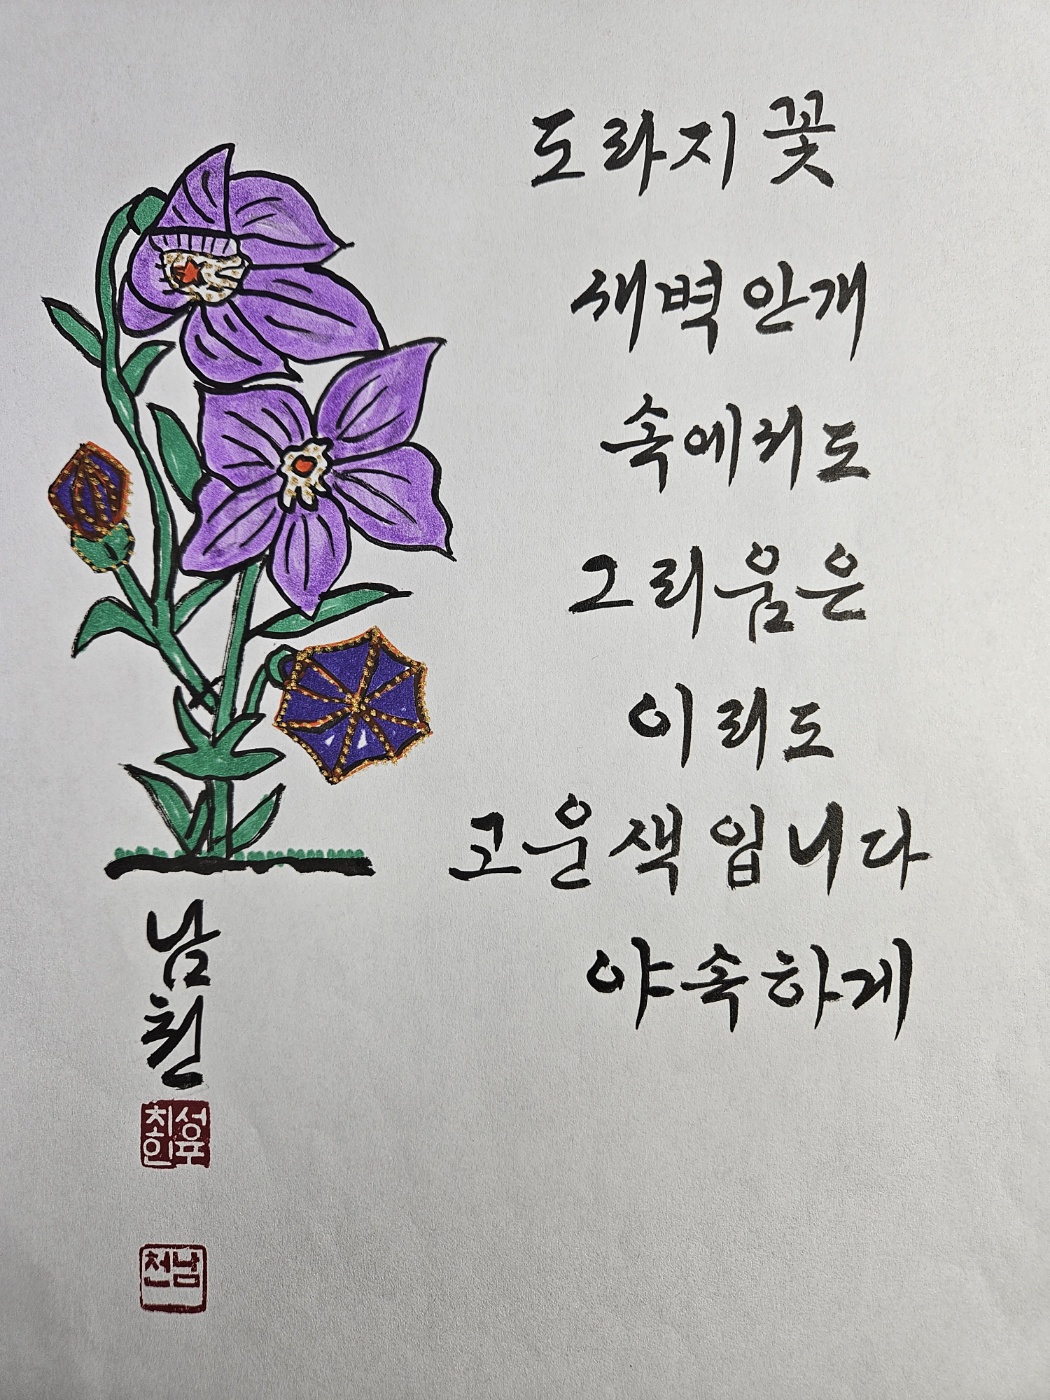 도라지 꽃
새벽 안개
속에서도
그리움은
이리도
고운 색입니다
야속하게
남천
남천